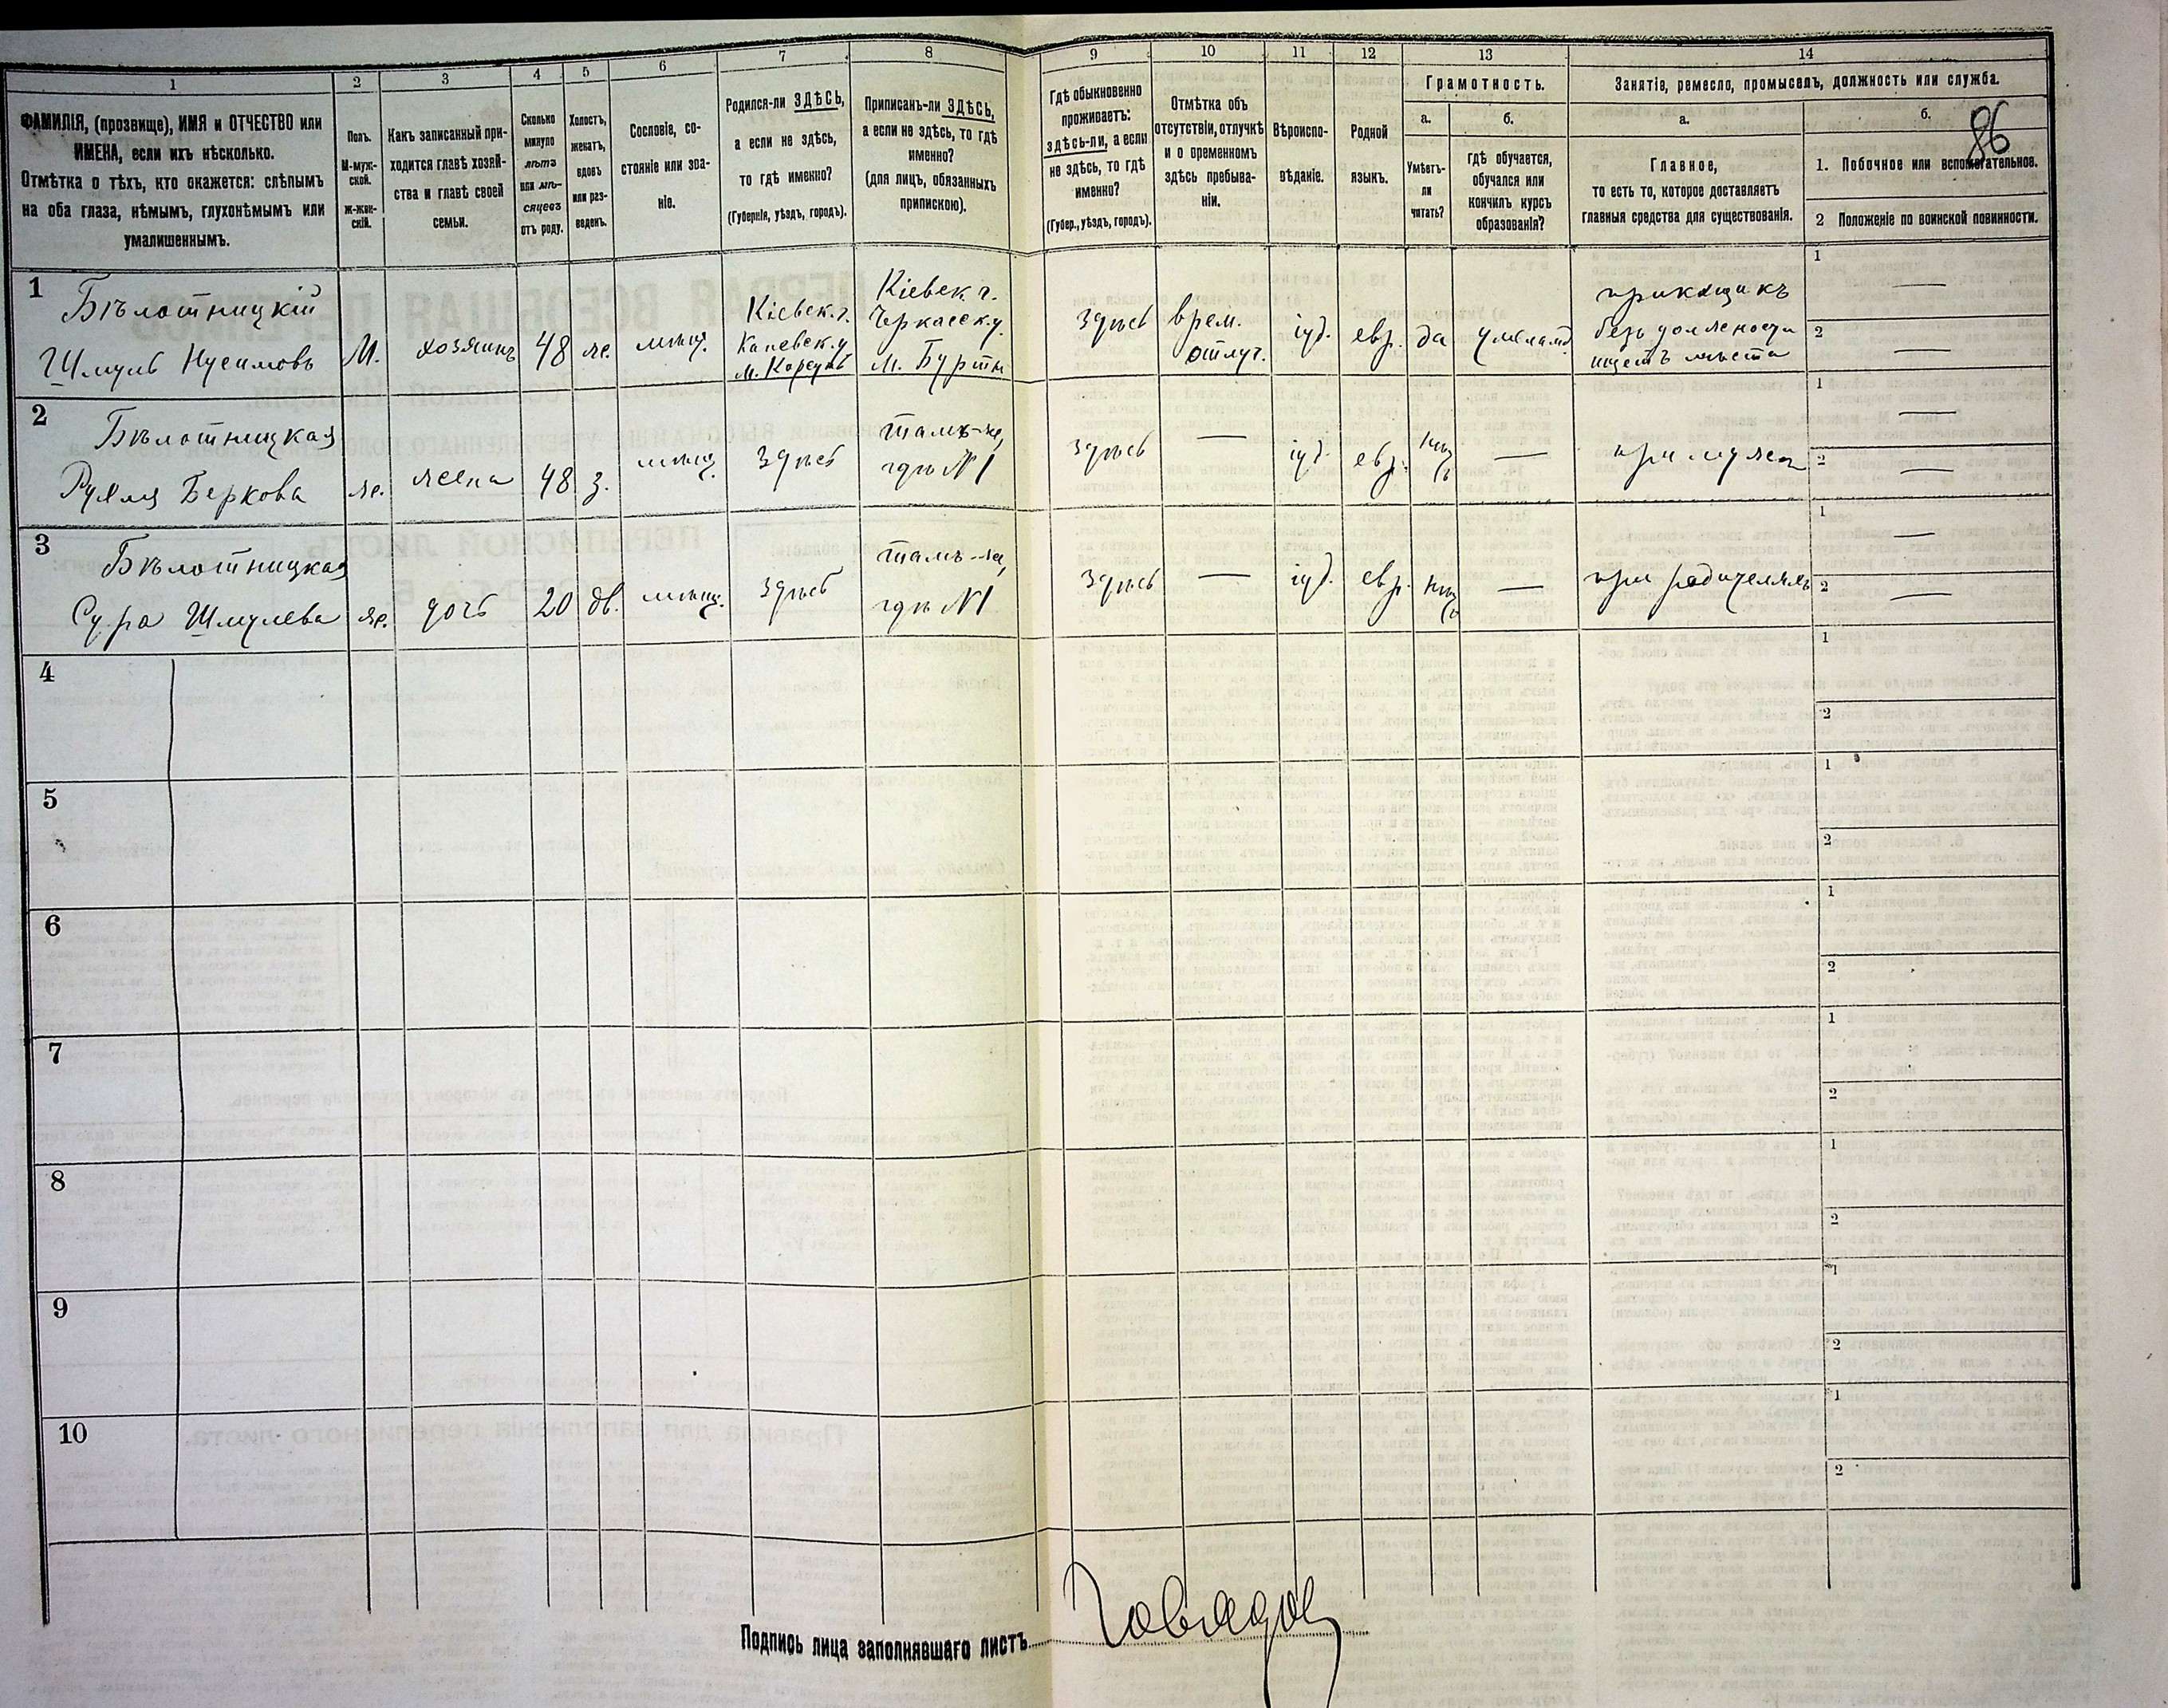 1 2 3 4 5 6 7 8 9 10 11 12 13 14
ФАМИЛІЯ, (прозвище), ИМЯ и ОТЧЕСТВО или
ИМЕНА, если ихъ нѣсколько.
Отмѣтка о тѣхъ, кто окажется: слѣпымъ
на оба глаза, нѣмымъ, глухонѣмымъ или
умалишеннымъ.
Полъ.
М-муж-
ской.
ж-жен-
скій.
Какъ записанный при-
ходится главѣ хозяй-
ства и главѣ своей
семьи.
Сколько
минуло
лѣтъ
или мѣ-
сяцевъ
отъ роду.
Холостъ,
женатъ,
вдовъ
или раз-
веденъ.
Сословіе, со-
стояніе или зва-
ніе.
Родился-ли ЗДѢСЬ,
а если не здѣсь,
то гдѣ именно?
(Губернія, уѣздъ, городъ).
Приписанъ-ли ЗДѢСЬ,
а если не здѣсь, то гдѣ
именно?
(для лицъ, обязанныхъ
припискою).
Гдѣ обыкновенно
проживаетъ:
здѣсь-ли, а если
не здѣсь, то гдѣ
именно?
(Губер., уѣздъ, городъ).
Отмѣтка объ
отсутствіи, отлучкѣ
и о временномъ
здѣсь пребыва-
ніи.
Вѣроиспо-
вѣданіе.
Родной
языкъ.
Грамотность.
а.
Умѣетъ-
ли
читать?
б.
гдѣ обучается,
обучался или
кончилъ курсъ
образованія?
Занятіе, ремесло, промыселъ, должность или служба.
а.
Главное,
то есть то, которое доставляетъ
главныя средства для существованія.
б.
86
1. Побочное или вспомогательное.
2 Положеніе по воинской повинности.
1
Бѣлотницкій
Шмуль Нусимовъ
М.
хозяинъ
48
же.
мѣщ.
Кіевск. г.
Каневск. у
м. Корсунь
Кіевск. г.
Черкасск. у.
м. Буртн
Здѣсь
врем.
отлуч.
іуд.
евр.
да
у меламд
прикащикъ
безъ должности
ищетъ мѣста
1 —
2 —
2
Бѣлотницкая
Рухля Беркова
же.
жена
48
з.
мѣщ.
Здѣсь
тамъ-же,
гдѣ №1
Здѣсь
—
іуд.
евр.
—
при мужѣ
1 —
2 —
3
Бѣлотницкая
Сура Шмулева
же.
дочь
20
дв.
мѣщ.
Здѣсь
тамъ-же,
гдѣ №1
Здѣсь
—
іуд.
евр.
—
при родителяхъ
1 —
2 —
4
1
2
5
1
2
6
1
2
7
1
2
8
1
2
9
1
2
10
1
2
Подпись лица заполнявшаго листъ